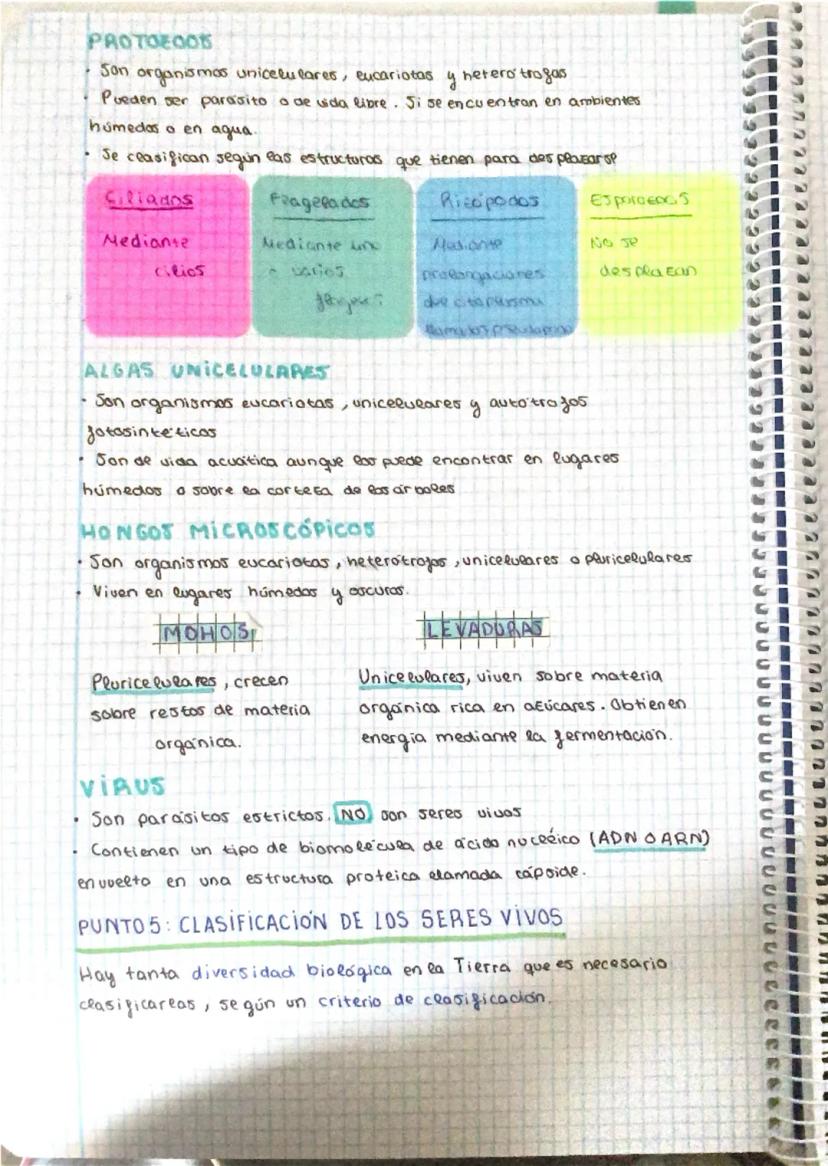 PROTOZOOS
· Son organismos unicelulares, eucariotas y heterótrofos
· Pueden ser parásito o de vida libre. Si se encuentran en ambientes
húmedos o en agua.
· Se clasifican según las estructuras que tienen para desplazarse
Ciliados
Mediante
cilios
Flagelados
Mediante uno
o varios
Rizópodos
Mediante
prolongaciones
llamados
Esporozoos
No se
desplazan
ALGAS UNICELULARES
· Son organismos eucariotas, unicelulares y autótrofos
fotosintéticos
· Son de vida acuática aunque los puede encontrar en lugares
húmedos o sobre la corteza de los árboles
HONGOS MICROSCÓPICOS
· Son organismos eucariotas, heterótrofos, unicelulares o pluricelulares
· Viven en lugares húmedos y oscuros.
MOHOS
Pluricelulares, crecen
sobre restos de materia
orgánica.
LEVADURAS
Unicelulares, viven sobre materia
orgánica rica en azúcares. Obtienen
energía mediante la fermentación.
VIRUS
· Son parásitos estrictos. NO son seres vivos
· Contienen un tipo de biomolécula de ácido nucléico (ADN O ARN)
envuelto en una estructura proteica llamada cápoide.
PUNTO 5: CLASIFICACIÓN DE LOS SERES VIVOS
Hay tanta diversidad biológica en la Tierra que es necesario
clasificarlas, según un criterio de clasificación.